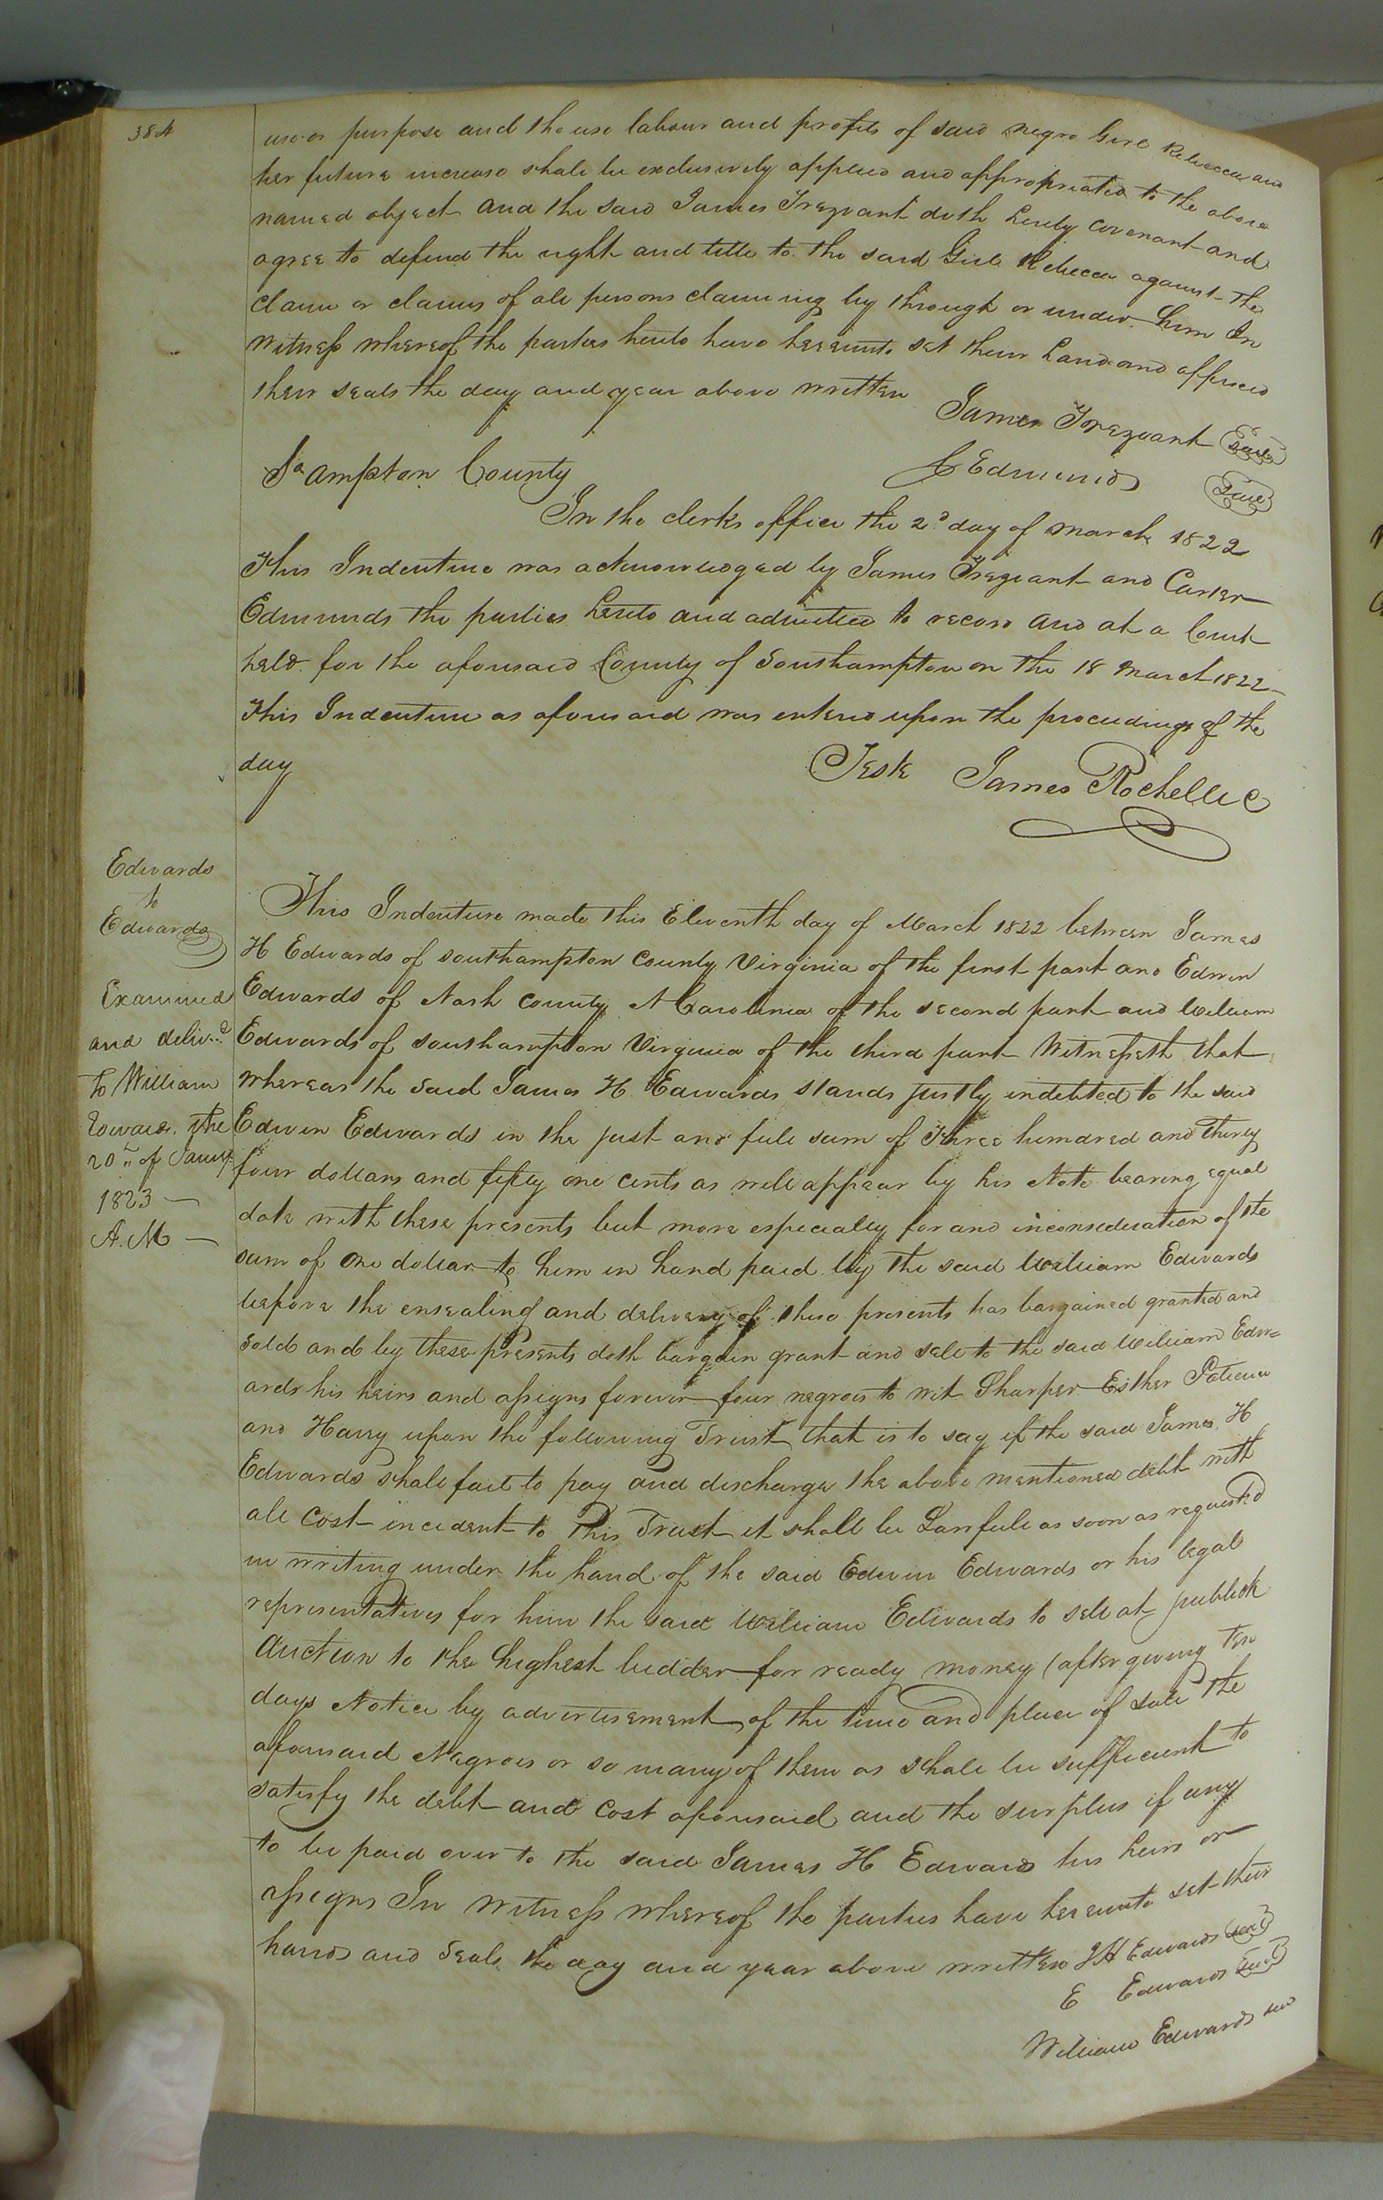 384
use or purpose and the use labour and profits of said negro Girl Rebecca and
her future increase shall be exclusively applied and appropriated to the above
named object and the said James Trezvant doth hereby covenant and
agree to defend the right and title to the said Girl Rebecca against the
claim or claims of all persons claiming by through or under him In
Witness whereof the parties hereto have hereunto set their hand and affixed
their seals the day and year above written
James Trezvant Seal
C Edmunds Seal
So ampton County
In the clerks office the 2d day of March 1822
This Indenture was acknowledged by James Trezvant and Carter
Edmunds the parties hereto and admitted to record and at a Court
held for the aforesaid County of Southampton on the 18 March 1822
This Indenture as aforesaid was entered upon the proceedings of the
day
Teste James Rochelle C
Edwards
to
Edwards
Examined
and delivd
to William
Edwards the
20th of Jany
1823 —
A. M —
This Indenture made this Eleventh day of March 1822 between James
H Edwards of Southampton County Virginia of the first part and Edwin
Edwards of Nash County N Carolinia of the second part and William
Edwards of Southampton Virginia of the third part Witnesseth that
whereas the said James H Edwards stands justly indebted to the said
Edwin Edwards in the just and full sum of Three hundred and thirty
four dollars and fifty one cents as will appear by his Note bearing equal
date with these presents but more especially for and inconsideration of the
sum of One dollar to him in hand paid by the said William Edwards
before the ensealing and delivery of these presents has bargained granted and
sold and by these presents doth bargain grant and sell to the said William Edw=
ards his heirs and assigns forever four negroes to wit Sharper Esther Patience
and Harry upon the following Trust that is to say if the said James H
Edwards shall fail to pay and discharge the above mentioned debt with
all cost incident to this Trust it shall be Lawfull as soon as requested
in writing under the hand of the said Edwin Edwards or his legal
representatives for him the said William Edwards to sell at publick
Auction to the highest bidder for ready money (after giving ten
days Notice by advertisement of the time and place of sale the
aforesaid Negroes or so many of them as shall be sufficient to
satisfy the debt and cost aforesaid and the surplus if any
to be paid over to the said James H Edwards his heirs or
assigns In Witness whereof the parties have hereunto set their
hands and seals the day and year above written J H Edwards seal
E Edwards seal
William Edwards seal